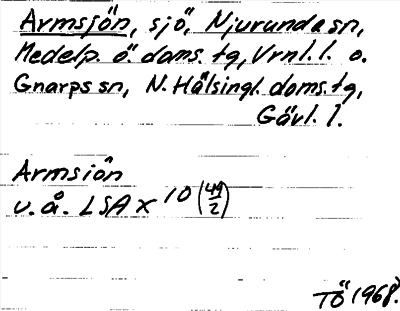 Armsjön, sjö, Njurunda sn,
Medelp. ö. doms. tg, Vrnl. l. o.
Gnarps sn, N. Hälsingl. doms. tg,
Gävl. l.
Armsiön
u. å. LSA X 10 (49/2)
TÖ 1968.